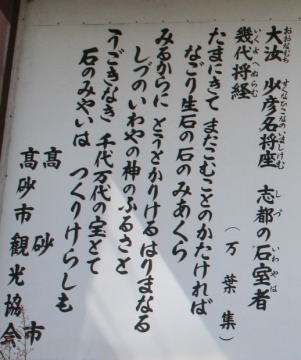 大汝　少彦名将座　志都の石室者
おおなむち　すくなひこなのいましけむ　しづ　いわやは
幾代将経
いくよへぬらむ
（万葉集）
たまにきて　またこむことのかたければ
なごり生石の石のみあくら
みるからに　とうとかりけるはりまなる
しづのいわやの神のふるさと
うごきなき　千代万代の宝とて
石のみやいは　つくりけらしも
高砂市
高砂市観光協会